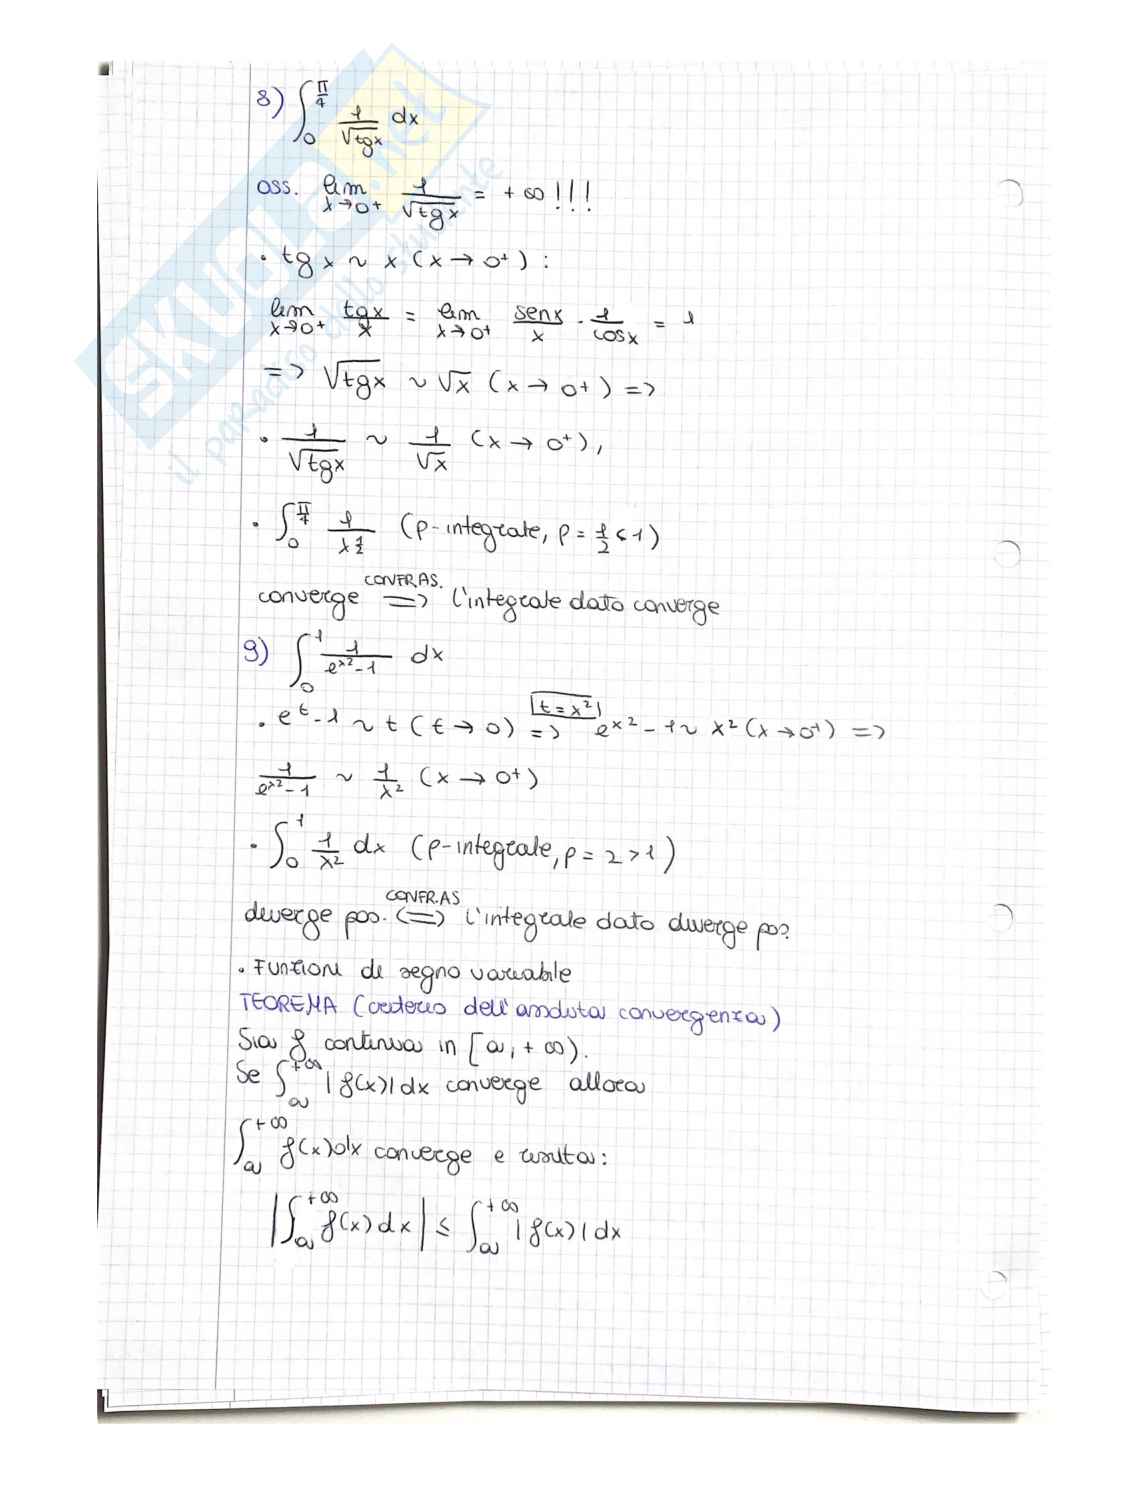 8) ∫₀^{π/4} 1/√tgx dx
oss. lim_{x→0+} 1/√tgx = +∞!!!
• tgx ~ x (x→0⁺):
lim_{x→0+} tgx/x = lim_{x→0+} senx/x · 1/cosx = 1
=> √tgx ~ √x (x→0+) =>
• 1/√tgx ~ 1/√x (x→0⁺),
• ∫₀^{π/4} 1/x^{1/2} (p-integrale, p = 1/2 < 1)
CONFR.AS.
converge => l'integrale dato converge
9) ∫₀¹ 1/(e^{x²}-1) dx
• e^t - 1 ~ t (t→0) => [t = x²] e^{x²} - 1 ~ x² (x→0⁺) =>
1/(e^{x²}-1) ~ 1/x² (x→0⁺)
• ∫₀¹ 1/x² dx (p-integrale, p = 2 > 1)
CONFR.AS
diverge pos. (=>) l'integrale dato diverge pos.
• Funzioni di segno variabile
TEOREMA (criterio dell'assoluta convergenza)
Sia f continua in [a, +∞).
Se ∫ₐ^{+∞} |f(x)| dx converge allora
∫ₐ^{+∞} f(x)dx converge e risulta:
|∫ₐ^{+∞} f(x) dx| ≤ ∫ₐ^{+∞} |f(x)| dx
SKUOLA.net
il paradiso dello studente